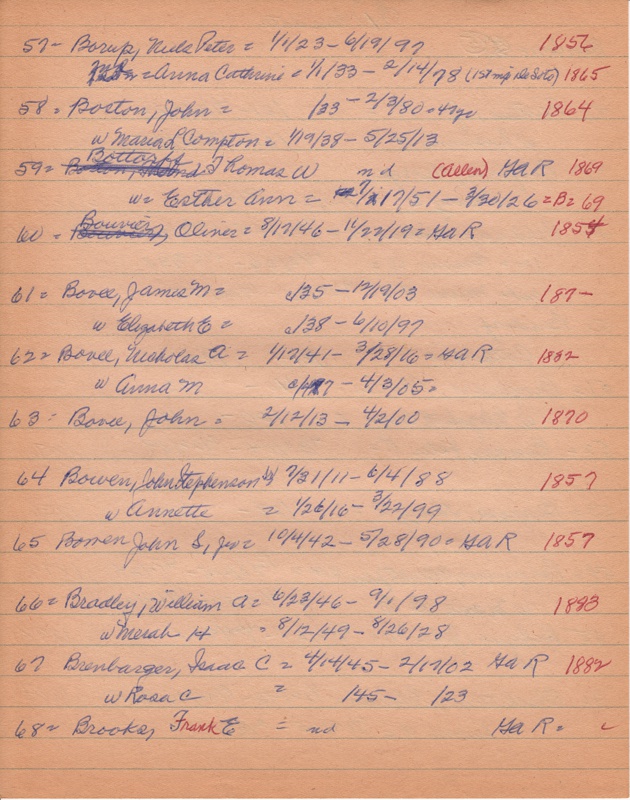 57 = Borup, Niels Peter = 1/1/23 - 6/19/97 1856
= Anna Cathrine = 1/1/33 - 2/14/78 (1st mp DeSoto) 1865
58 = Boston, John = /33 - 2/3/80 = 47yr 1864
w Maria L Compton = 1/19/38 - 5/25/13
59 = Thomas W nd (Allen) GaR 1869
w = Esther Ann = 17/51 - 3/30/26 = B = 69
60 = Bouvier, Oliver = 8/17/46 - 11/22/19 = GaR 1854
61 = Bovee, James M = c/35 - 12/19/03 187-
w Elizabeth E = c/38 - 6/10/97
62 = Bovee, Nicholas A = 1/17/41 - 3/28/16 = GaR 1882
w Anna M - 4/3/05 =
63 = Bovee, John = 2/12/13 - 4/2/00 1870
64 Bowen, John Stephenson 7/31/11 - 6/4/88 1857
w Annette = 1/26/16 - 3/22/99
65 Bowen John S, jr = 10/4/42 - 5/28/90 = GaR 1857
66 = Bradley, William A = 6/23/46 - 9/1/98 1883
w Merah H = 8/12/49 - 8/26/28
67 Brenbarger, Isaac C = 4/14/45 - 2/17/02 GaR 1882
w Rosa C = /45 - /23
68 = Brooks, Frank E = nd GaR =